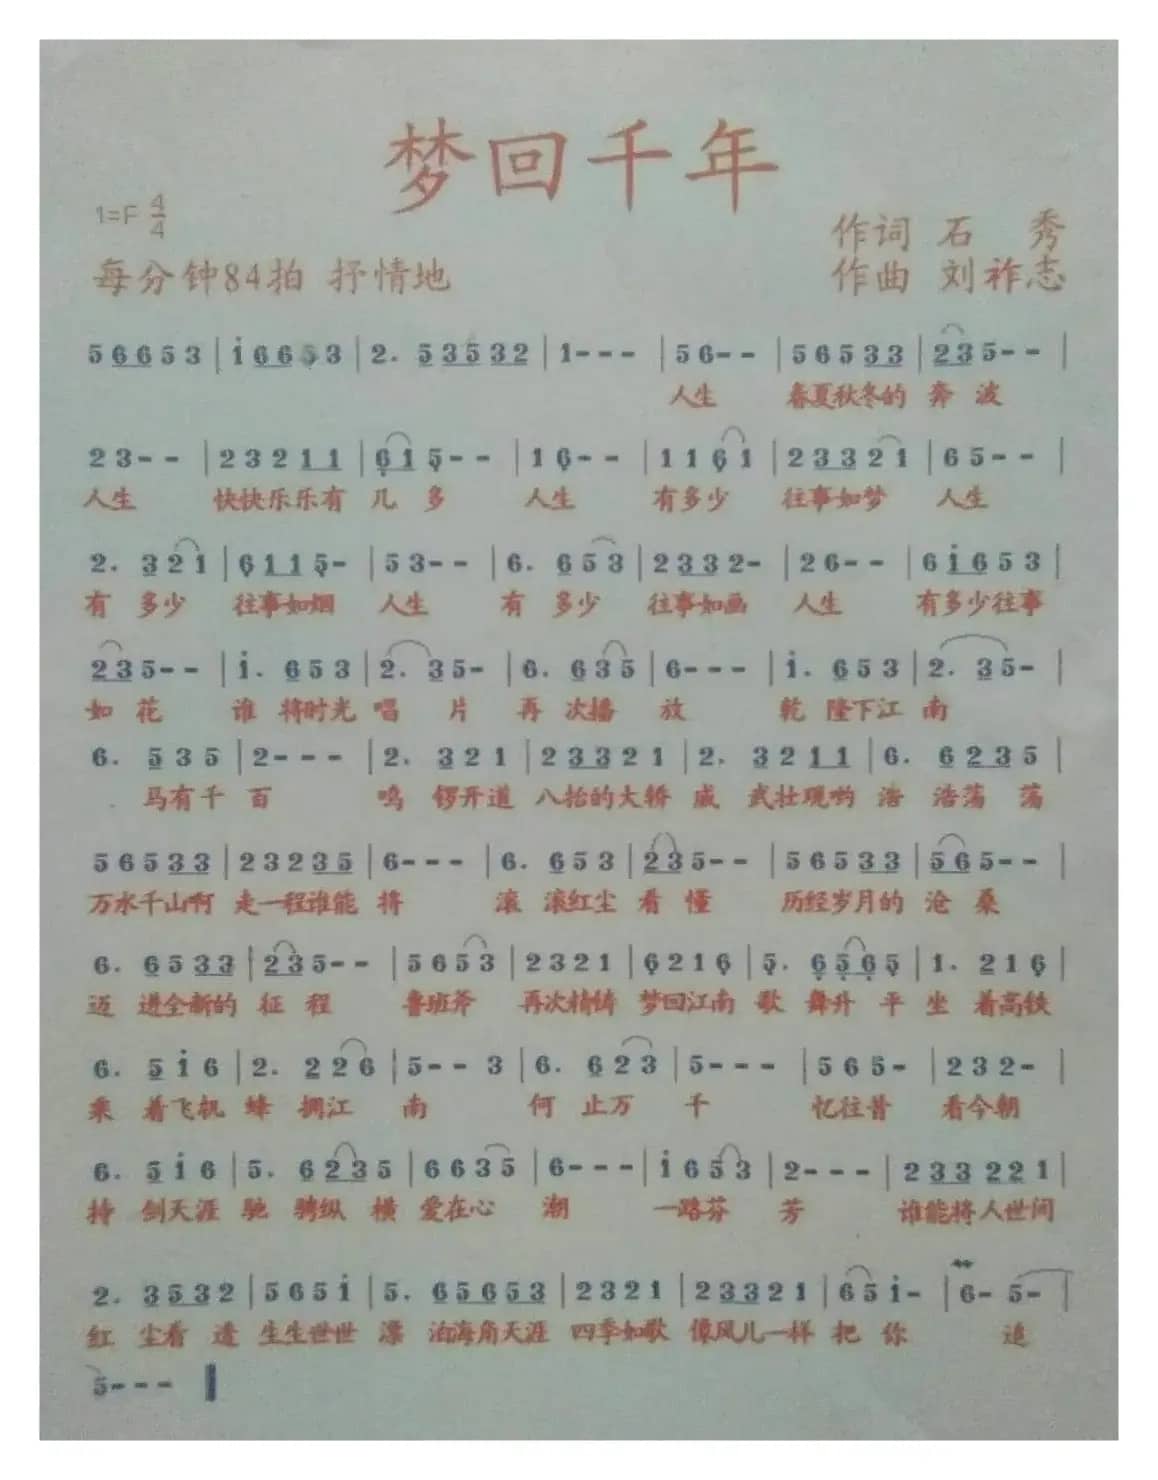 梦回千年
1=F 4/4
作词 石 秀
每分钟84拍 抒情地
作曲 刘祚志
5 6 6 5 3 | i 6 6 5 3 | 2. 5 3 5 3 2 | 1 - - - | 5 6 - - | 5 6 5 3 3 | 2 3 5 - - |
人生 春夏秋冬的 奔 波
2 3 - - | 2 3 2 1 1 | 6 1 5 - - | 1 6 - - | 1 1 6 1 | 2 3 3 2 1 | 6 5 - - |
人生 快快乐乐有 几 多 人生 有多少 往事如梦 人生
2. 3 2 1 | 6 1 1 5 - | 5 3 - - | 6. 6 5 3 | 2 3 3 2 - | 2 6 - - | 6 i 6 5 3 |
有 多少 往事如烟 人生 有 多少 往事如画 人生 有多少往事
2 3 5 - - | i. 6 5 3 | 2. 3 5 - | 6. 6 3 5 | 6 - - - | i. 6 5 3 | 2. 3 5 - |
如 花 谁 将时光 唱 片 再 次播 放 乾 隆下江 南
6. 5 3 5 | 2 - - - | 2. 3 2 1 | 2 3 3 2 1 | 2. 3 2 1 1 | 6. 6 2 3 5 |
马有千 百 鸣 锣开道 八抬的大轿 威 武壮观哟 浩 浩荡 荡
5 6 5 3 3 | 2 3 2 3 5 | 6 - - - | 6. 6 5 3 | 2 3 5 - - | 5 6 5 3 3 | 5 6 5 - - |
万水千山啊 走一程谁能 将 滚 滚红尘 看 懂 历经岁月的 沧 桑
6. 6 5 3 3 | 2 3 5 - - | 5 6 5 3 | 2 3 2 1 | 6 2 1 6 | 5. 6 5 6 5 | 1. 2 1 6 |
迈 进全新的 征 程 鲁班斧 再次精铸 梦回江南 歌 舞升 平 坐 着高铁
6. 5 i 6 | 2. 2 2 6 | 5 - - 3 | 6. 6 2 3 | 5 - - - | 5 6 5 - | 2 3 2 - |
乘 着飞机 蜂 拥江 南 何 止万 千 忆往昔 看今朝
6. 5 i 6 | 5. 6 2 3 5 | 6 6 3 5 | 6 - - - | i 6 5 3 | 2 - - - | 2 3 3 2 2 1 |
持 剑天涯 驰 骋纵 横 爱在心 潮 一路芬 芳 谁能将人世间
2. 3 5 3 2 | 5 6 5 i | 5. 6 5 6 5 3 | 2 3 2 1 | 2 3 3 2 1 | 6 5 i - | 6 - 5 - |
红 尘看 透 生生世世 漂 泊海角天涯 四季如歌 像风儿一样 把 你 追
5 - - - |